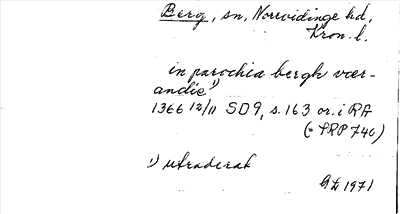 Berg, sn, Norrvidinge hd,
Kron. l.
in parochia bergh vær-
andie¹⁾
1366 12/11 SD9, s. 163 or. i RA
(= SRP 740)
¹⁾ utraderat
1971